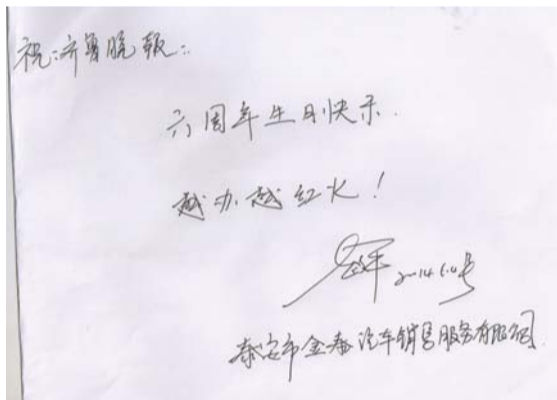 祝:齐鲁晚报:
六周年生日快乐.
越办越红火!
2014.6.4号
泰安市金泰汽车销售服务有限公司